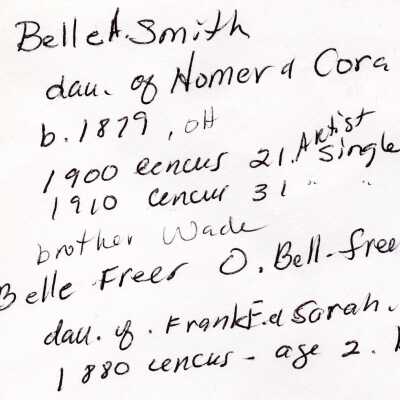 Belle A. Smith
dau. of Homer & Cora
b. 1879, OH
1900 cencus 21. Artist Single
1910 cencur 31 " "
brother Wade
Belle Freer O. Bell-free
dau. of. Frank E. & Sarah.
1880 cencus - age 2.